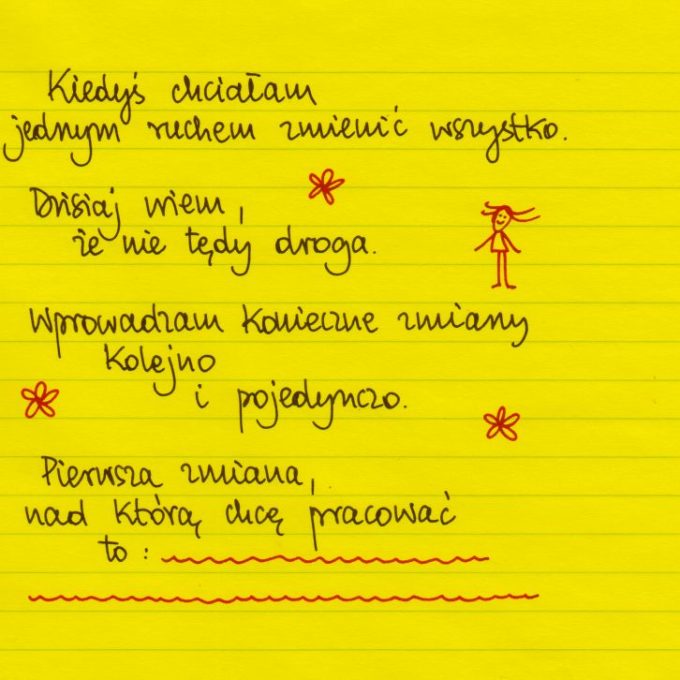 Kiedyś chciałam
jednym ruchem zmienić wszystko.
Dzisiaj wiem,
że nie tędy droga.
Wprowadzam konieczne zmiany
kolejno
i pojedynczo.
Pierwsza zmiana,
nad którą chcę pracować
to: